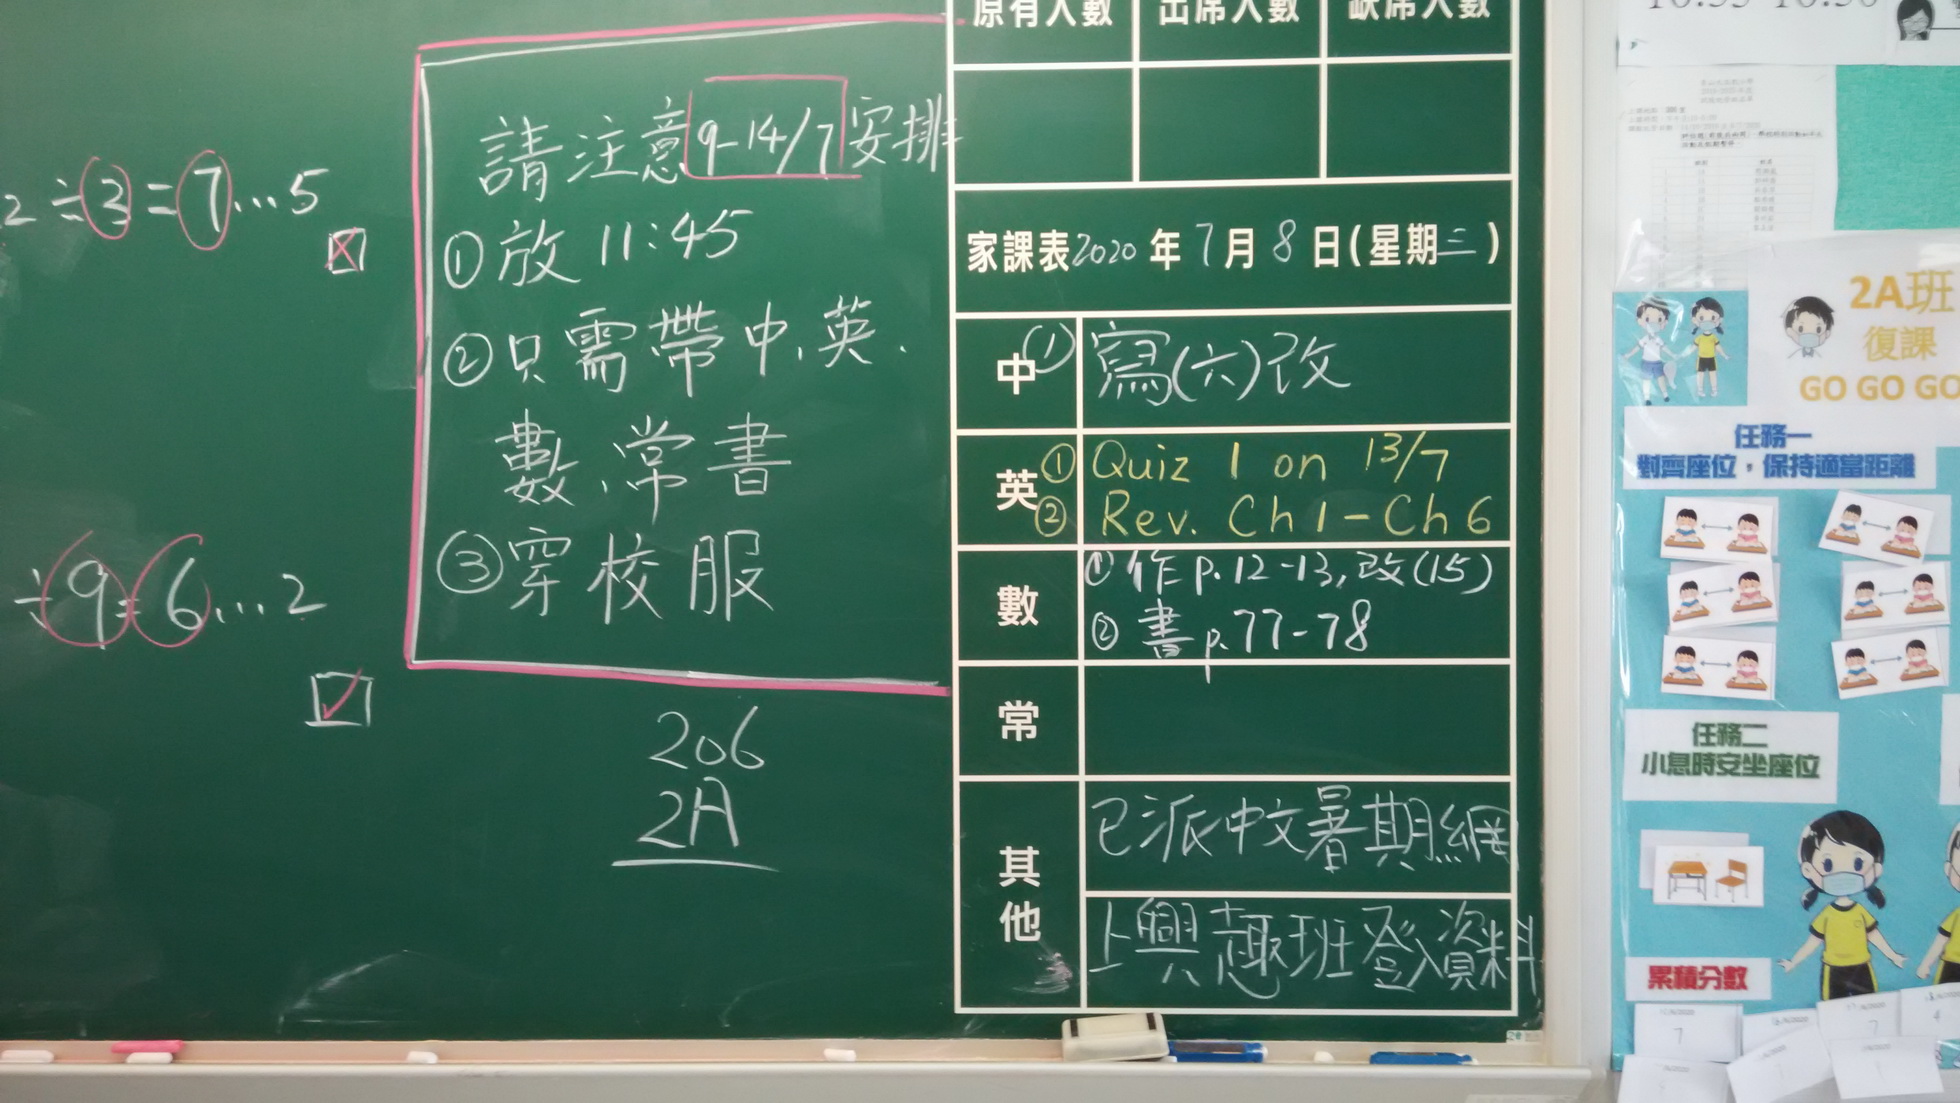 2÷3=7...5
÷9=6...2
請注意9-14/7安排
①放 11:45
②只需帶中、英、
數、常書
③穿校服
206
2A
原有人數 出席人數 缺席人數
家課表2020年7月8日(星期三)
中 (1) 寫(六)改
英 ① Quiz 1 on 13/7
② Rev. Ch1-Ch6
數 ① 作p.12-13,改(15)
② 書p.77-78
常
其他 已派中文暑期網
上興趣班登入資料
2A班
復課
GO GO GO
任務一
對齊座位，保持適當距離
任務二
小息時安坐座位
累積分數
7
7
4